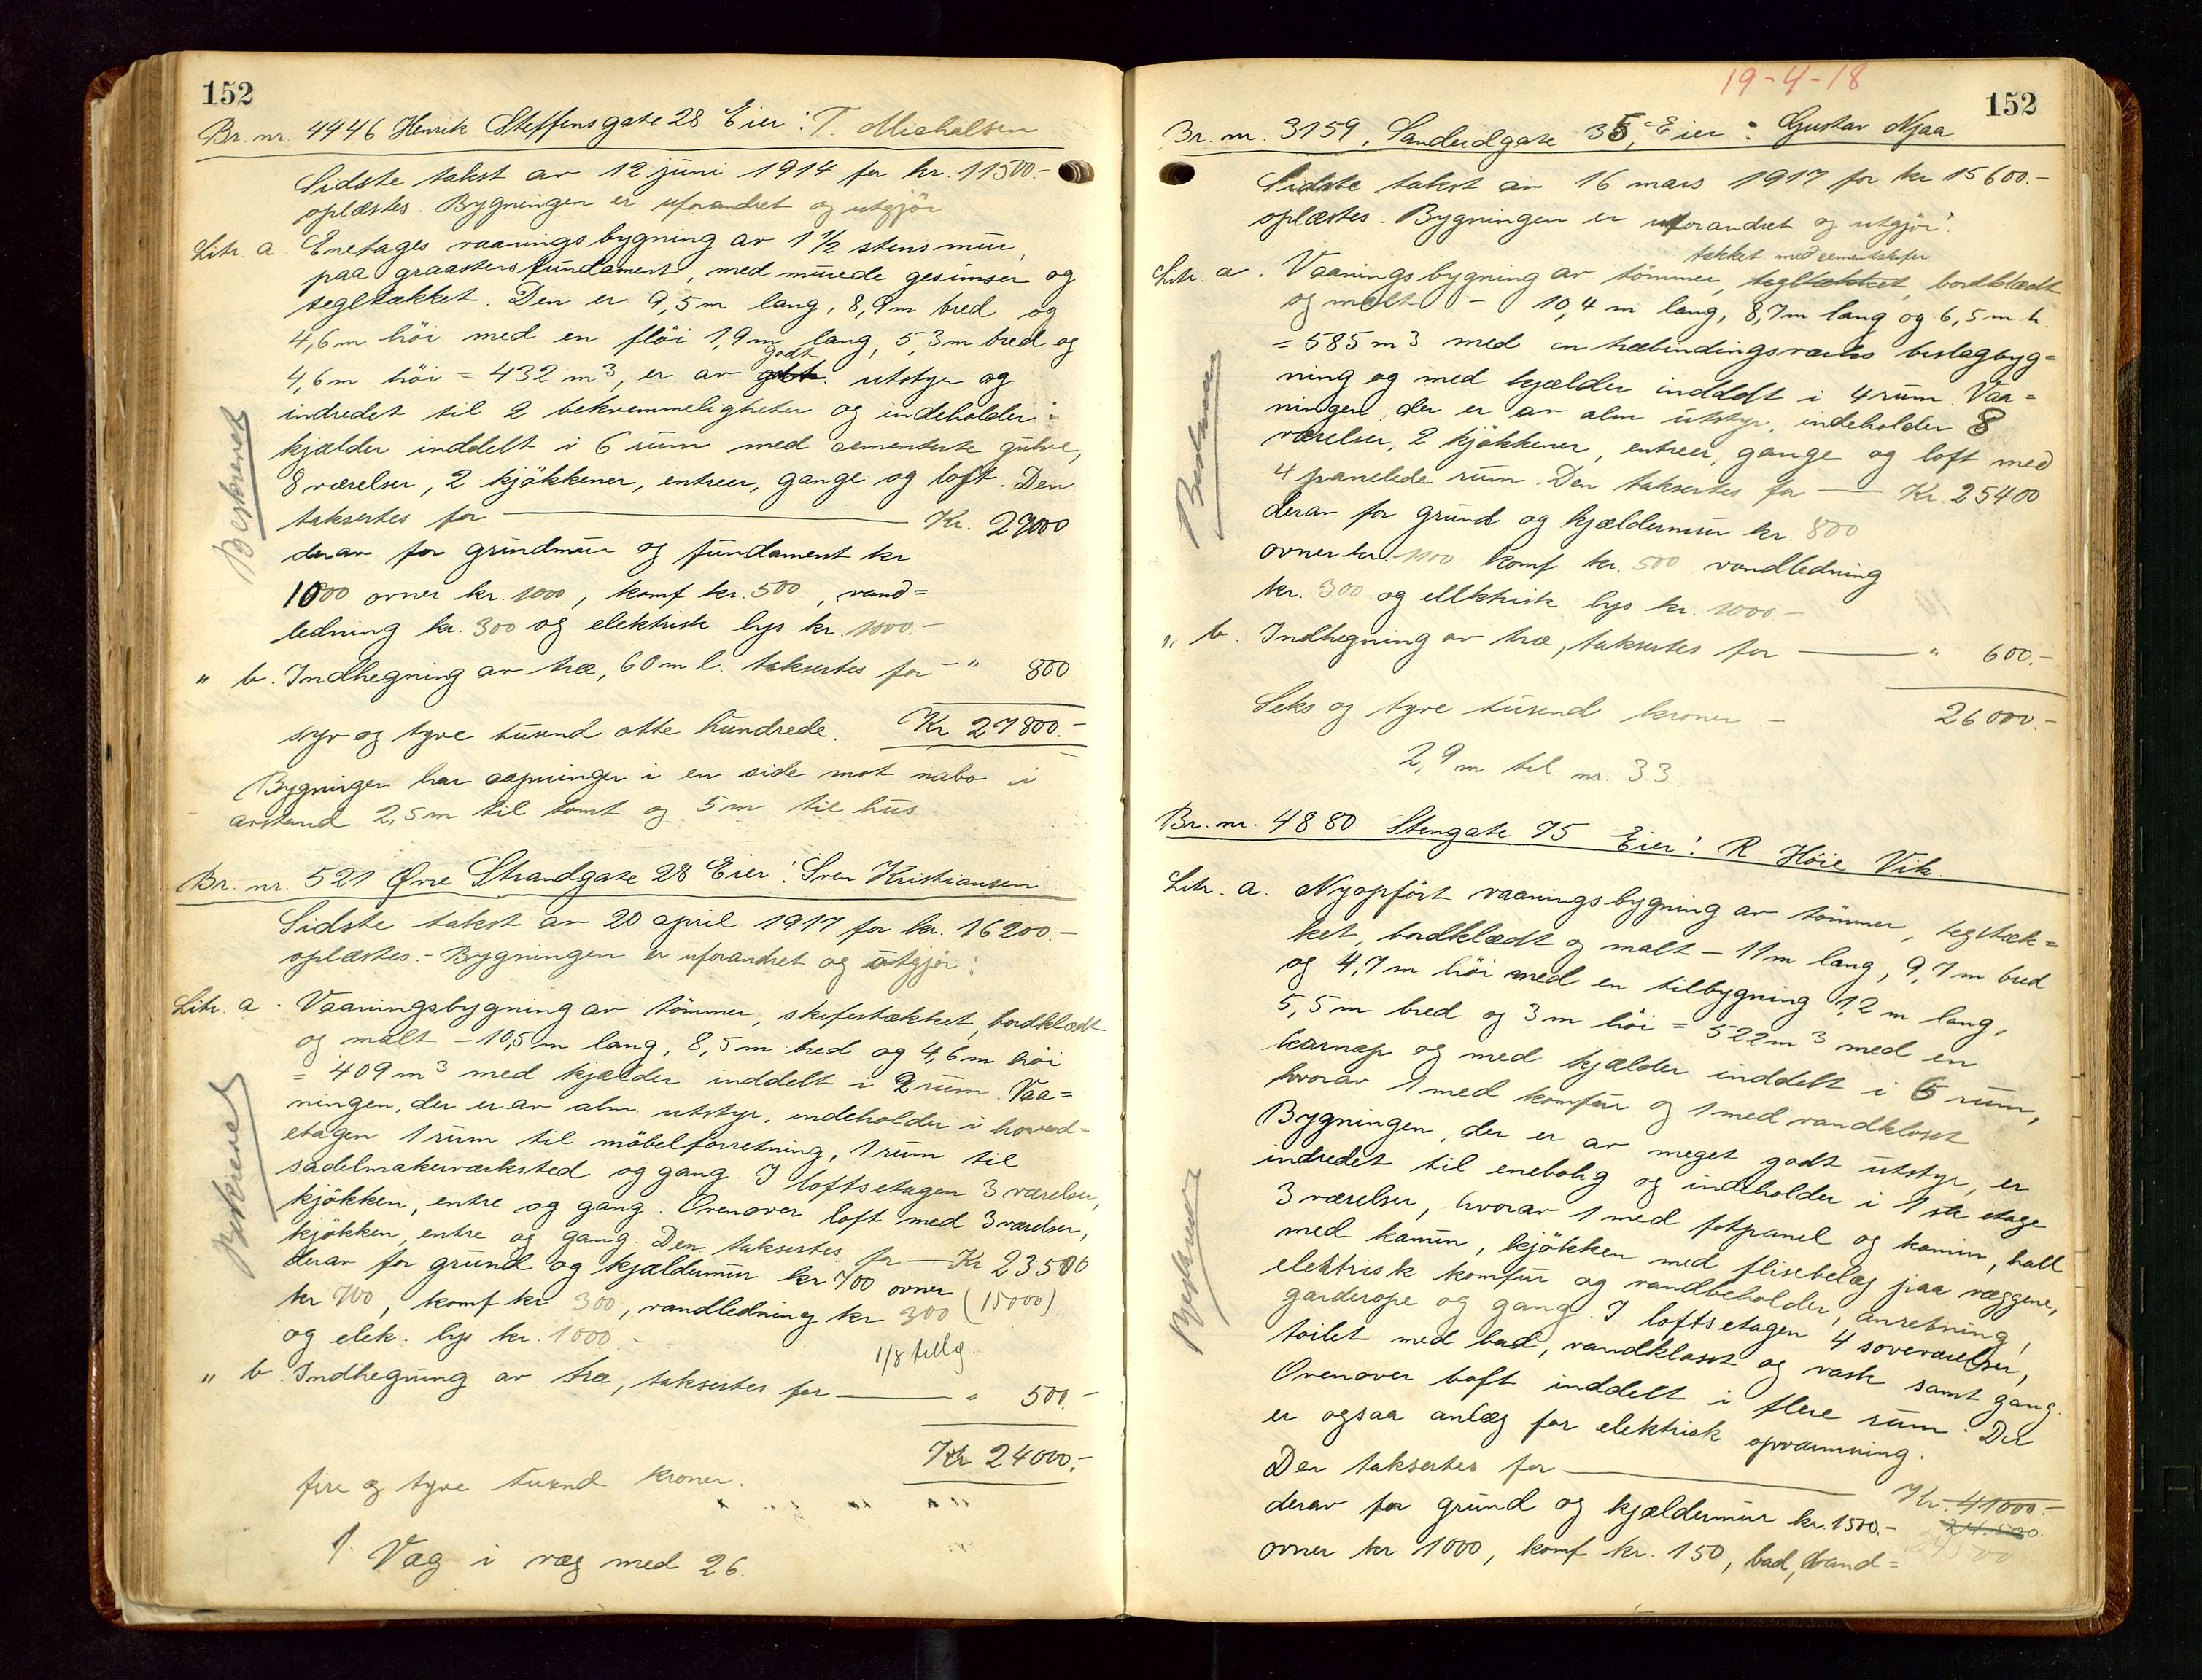 152
Br. nr. 4446 Henrik Steffensgate 28 Eier: T. Michalsen
Sidste takst av 12 juni 1914 for kr. 11500.-
oplæstes. Bygningen er uforandret og utgjör
Litr. a. Enetages vaaningsbygning av 1 1/2 stens mur,
paa graastensfundament, med murede gesimser og
tegltækket. Den er 9,5 m lang, 8,9 m bred og
4,6 m höi med en flöi 1,9 m lang, 5,3 m bred og
4,6 m höi = 432 m3, er av godt utstyr og
indredet til 2 bekvemmeligheter og indeholder:
kjælder inddelt i 6 rum med cementerte gulve,
8 værelser, 2 kjökkener, entreer, gange og loft. Den
taksertes for Kr. 27000
derav for grundmur og fundament kr
1000 ovner kr. 1000, komf kr. 500, vand=
ledning kr. 300 og elektrisk lys kr. 1000.-
" b. Indhegning av træ, 60 m l. taksertes for - " 800
syv og tyve tusend otte hundrede. Kr 27800.-
Bygningen har aapninger i en side mot nabo i
avstand 2,5 m til tomt og 5 m til hus
Beskrevet
Br. nr. 521 Övre Strandgate 28 Eier: Sven Kristiansen
Sidste takst av 20 april 1917 for kr. 16200.-
oplæstes.- Bygningen er uforandret og utgjör:
Litr. a. Vaaningsbygning av tömmer, skifertækket, bordklædt
og malt - 10,5 m lang, 8,5 m bred og 4,6 m höi
= 409 m3 med kjælder inddelt i 2 rum. Vaa=
ningen, der er av alm utstyr, indeholder i hoved=
etagen 1 rum til möbelforretning, 1 rum til
sadelmakerværksted og gang. I loftsetagen 3 værelser,
kjökken, entre og gang. Ovenover loft med 3 værelser,
kjökken, entre og gang. Den taksertes for Kr 23500
derav for grund og kjældermur kr 700 ovner
kr 700, komf kr 300, vandledning kr 300 (15000)
og elek. lys kr. 1000.-
1/8 tillg.
" b. Indhegning av træ, taksertes for " 500.-
Kr 24000.-
fire og tyve tusend kroner.
Væg i væg med 26.
Beskrevet
19-4-18
152
Br. nr. 3159, Sandeidgate 35, Eier: Gustav Njaa
Sidste takst av 16 mars 1917 for kr 15600.-
oplæstes. Bygningen er uforandret og utgjör:
takket med cementskifer
Litr. a. Vaaningsbygning av tömmer, tegltækket, bordklædt
og malt - 10,4 m lang, 8,7 m lang og 6,5 m h.
= 585 m3 med en træbindingsværks bislagbyg=
ning og med kjælder inddelt i 4 rum. Vaa=
ningen, der er av alm utstyr, indeholder 8
værelser, 2 kjökkener, entreer, gange og loft med
4 panelede rum. Den taksertes for Kr. 25400
derav for grund og kjældermur kr. 800
ovner kr. 1100 komf kr. 500 vandledning
kr. 300 og elektrisk lys kr. 1000-
" b. Indhegning av træ, taksertes for " 600.-
Seks og tyve tusend kroner.- 26000.-
2,9 m til nr. 33
Beskrevet
Br. nr. 4880 Stengate 75 Eier: R. Höie Vik.
Litr. a. Nyopfört vaaningsbygning av tömmer, teglstæk=
ket, bordklædt og malt - 11 m lang, 9,7 m bred
og 4,7 m höi med en tilbygning 1,2 m lang,
5,5 m bred og 3 m höi = 522 m3 med en
karnap og med kjælder inddelt i 6 rum,
hvorav 1 med komfur og 1 med vandkloset
Bygningen, der er av meget godt utstyr, er
indredet til enebolig og indeholder i 1ste etage
3 værelser, hvorav 1 med fotpanel og kamin, hall
med kamin, kjökken med flisebelæg paa væggene,
elektrisk komfur og vandbeholder, anretning,
garderope og gang. I loftsetagen 4 soveværelser,
toilet med bad, vandkloset og vask samt gang.
Ovenover loft inddelt i flere rum. Der
er ogsaa anlæg for elektrisk opvarmning.
Den taksertes for Kr. 41000.-
24.500.
24500
derav for grund og kjældermur kr. 1500.-
ovner kr 1000, komf kr. 150, bad, vand=
Beskrevet